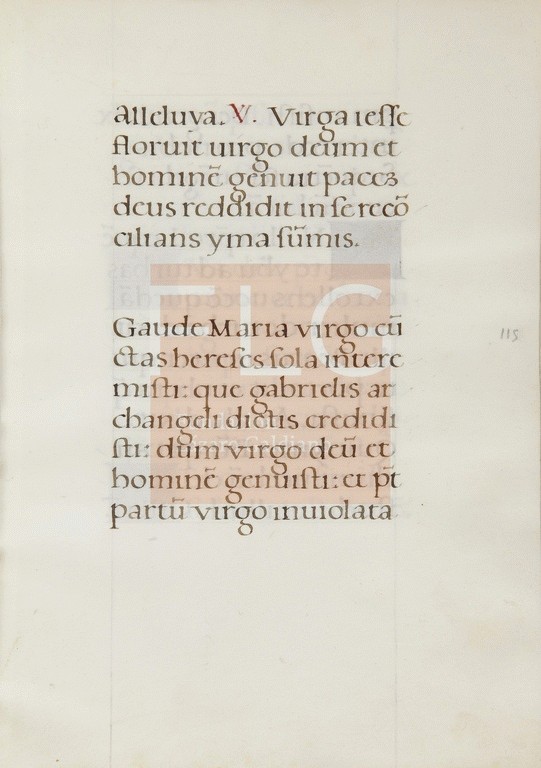 alleluya. V. Virga iesse
floruit uirgo deum et
hominē genuit pacem
deus reddidit in se recō
cilians yma sūmis.
Gaude Maria virgo cū
ctas hereses sola intere
misti: que gabrielis ar
changeli dictis credidi
sti: dum virgo deū et
hominē genuisti: et pt̄
partū virgo inuiolata
115
FLG